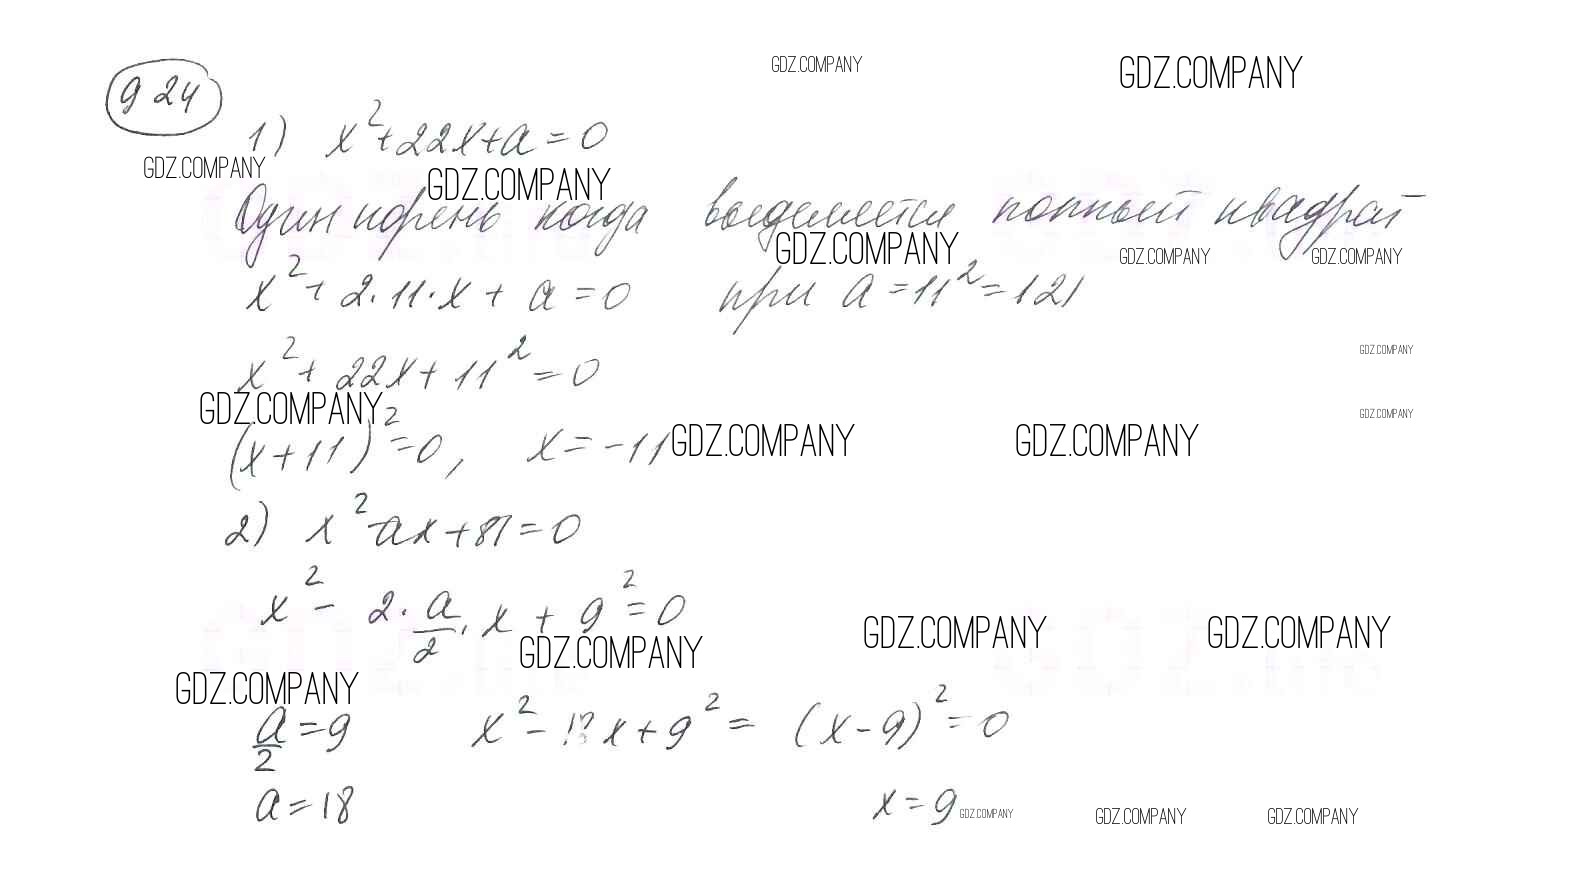 924
GDZ.COMPANY GDZ.COMPANY
1) x²+22x+a=0
GDZ.COMPANY GDZ.COMPANY
Один корень когда выделяется полный квадрат
GDZ.COMPANY GDZ.COMPANY GDZ.COMPANY
x²+2·11·x+a=0 при a=11²=121
GDZ.COMPANY
x²+22x+11²=0
GDZ.COMPANY GDZ.COMPANY
(x+11)²=0, x=-11 GDZ.COMPANY GDZ.COMPANY
2) x²-ax+81=0
x²-2·a/2·x+9²=0
GDZ.COMPANY GDZ.COMPANY GDZ.COMPANY
GDZ.COMPANY
a/2=9 x²-18x+9²=(x-9)²=0
a=18 x=9 GDZ.COMPANY GDZ.COMPANY GDZ.COMPANY